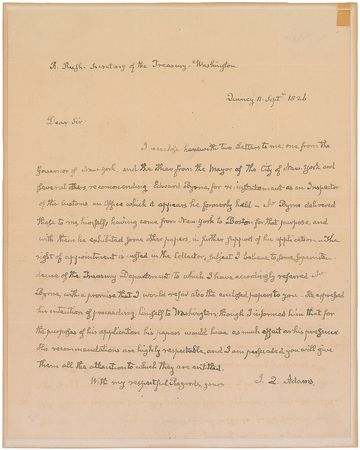 R. Rush. Secretary of the Treasury - Washington
Quincy 11. Septr. 1826.
Dear Sir
I enclose herewith two Letters to me; one from the
Governor of New-York, and the other from the Mayor of the City of New York and
several others recommending Edward Byrne, for re-instatement as an Inspector
of the Customs an Office which it appears he formerly held - Mr Byrne delivered
these to me himself, having come from New York to Boston for that purpose, and
with them he exhibited some other papers, in further support of his application - The
right of appointment is vested in the Collector, subject I believe to some Superinten-
dence of the Treasury Department; to which I have accordingly referred Mr
Byrne, with a promise that I would refer also the enclosed papers to you - He expressed
his intention of proceeding himself to Washington, though I informed him that for
the purposes of his application his papers would have as much effect as his presence
His recommendations are highly respectable, and I am persuaded you will give
them all the attention to which they are entitled.
With my respectful regards, yours J. Q. Adams.